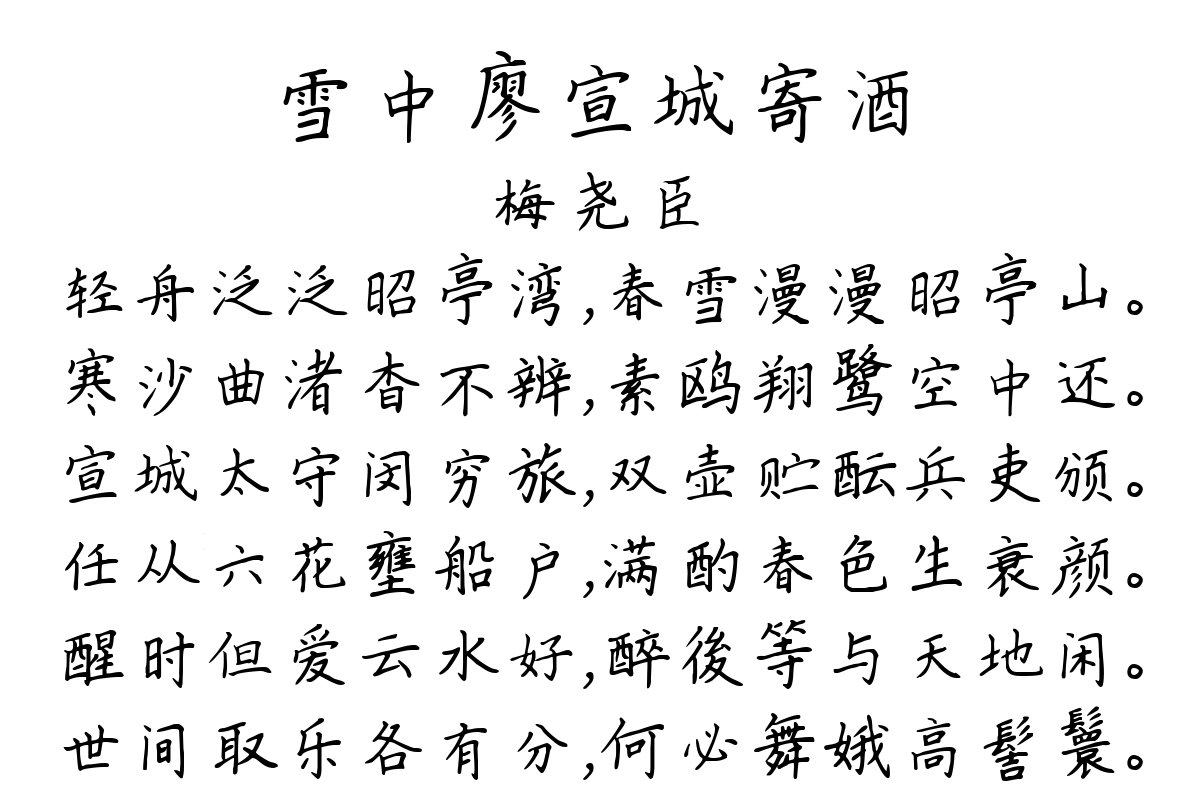 雪中廖宣城寄酒
梅尧臣
轻舟泛泛昭亭湾,春雪漫漫昭亭山。
寒沙曲渚杳不辨,素鸥翔鹭空中还。
宣城太守闵穷旅,双壶贮酝兵吏颁。
任从六花壅船户,满酌春色生衰颜。
醒时但爱云水好,醉後等与天地闲。
世间取乐各有分,何必舞娥高髻鬟。